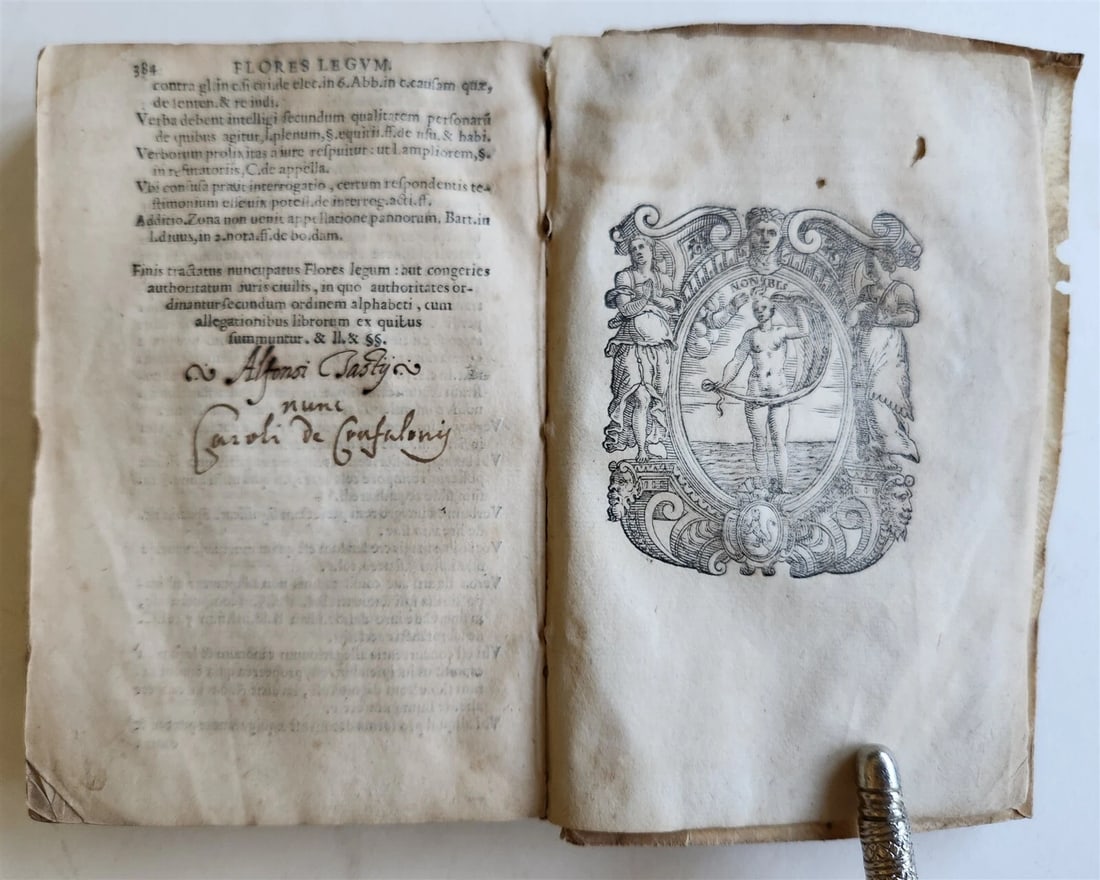 384 FLORES LEGVM.
contra gl. in c. si cui de elec. in 6. Abb. in c. causam quæ,
de senten. & re iudi.
Verba debent intelligi secundum qualitatem personarũ
de quibus agitur, l. plenum, §. equitii. ff. de usu. & habi.
Verborum prolixitas a iure respuitur: ut l. ampliorem, §.
in refutatoriis, C. de appella.
Vbi confusa præit interrogatio, certum respondentis te-
stimonium esse potest. de interrog. acti. ff.
Additio. Zona non uenit appellatione pannorum. Bart. in
l. diuus, in 2. nota. ff. de bo. dam.
Finis tractatus nuncupatus Flores legum: aut congeries
authoritatum iuris ciuilis, in quo authoritates or-
dinantur secundum ordinem alphabeti, cum
allegationibus librorum ex quibus
summuntur. & ll. & §§.
Alfonsi
nunc
Caroli de Confalonijs
NON